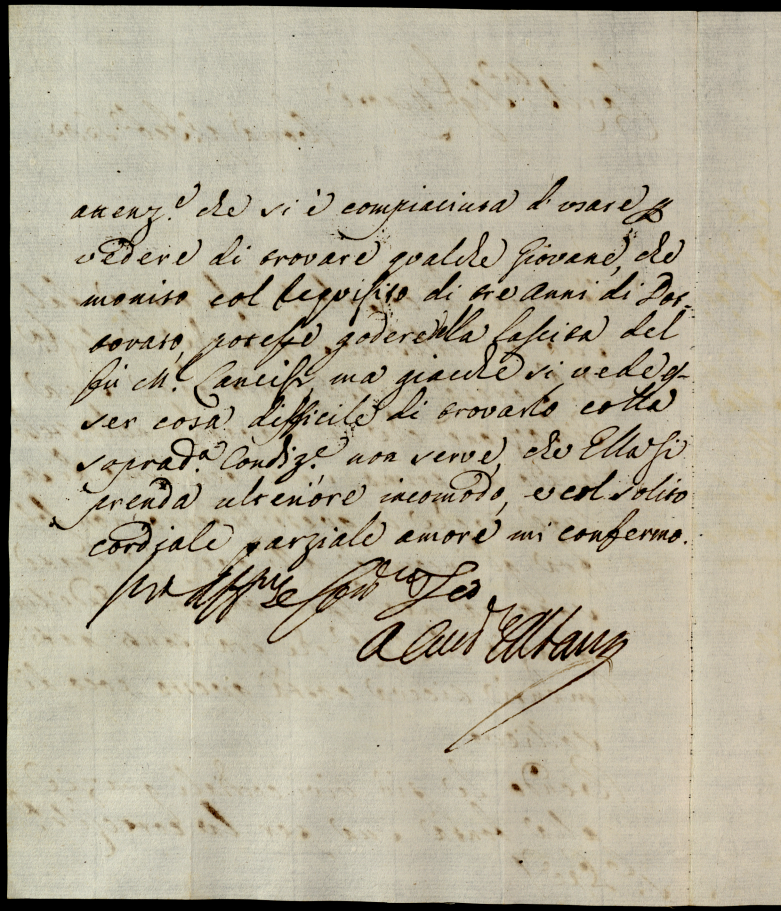 attenz.e che si è compiaciuta di usare p
vedere di trovare qualche Giovane, che
monito col requisito di tre anni di Dot-
torato, potesse godere della lascita del
fù M.r Lancisi, ma giacche si vede es-
ser cosa difficile di trovarlo colla
soprad.a Condiz.e non serve, che Ella si
prenda ulteriore incomodo, e col solito
cordiale parziale amore mi confermo.
A Card Albani